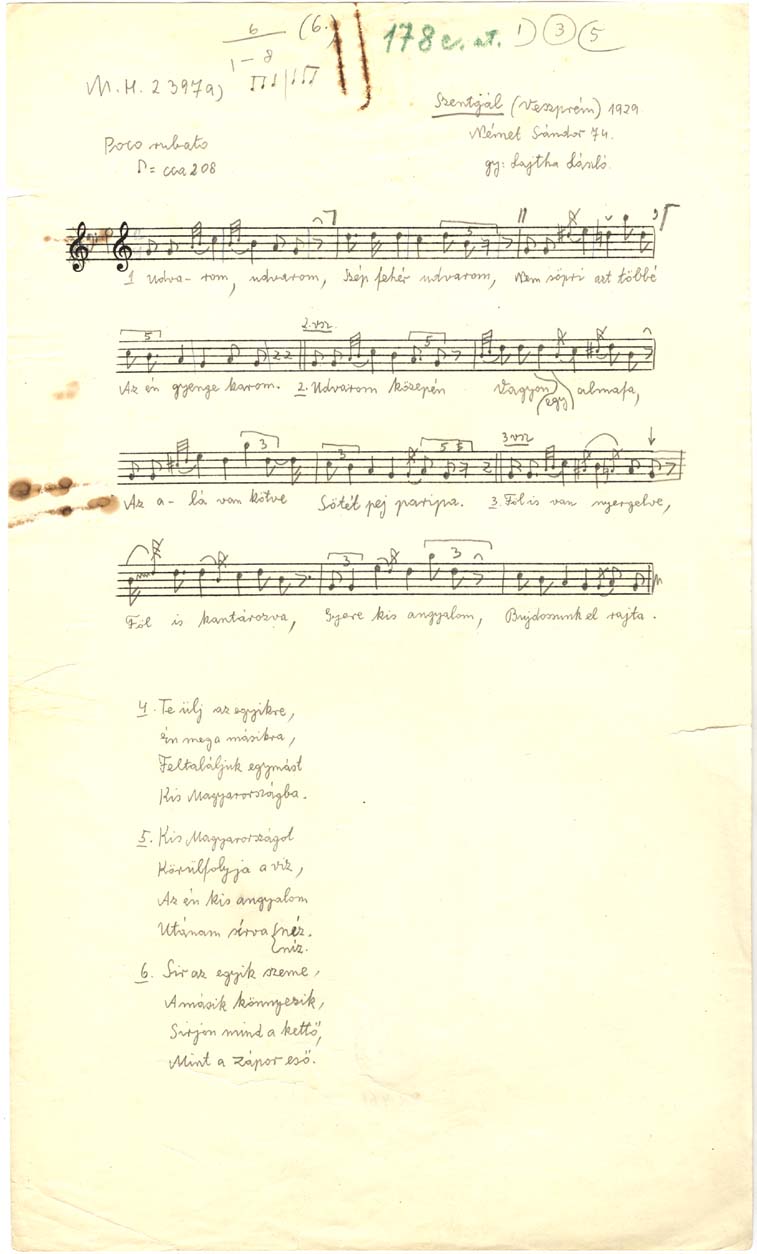 6 (6.)
1 – 8
178 c. at. 1) 3 5
M.H. 2397a)
Szentgál (Veszprém) 1929
Német Sándor 74.
gy: Lajtha László.
Poco rubato
♪= cca 208
5
1 Udva- rom, udvarom, Szép fehér udvarom, Nem söpri azt többé
5 2. vsz. 5
Az én gyenge karom. 2. Udvarom közepén Vagyon (egy) almafa,
3 3 5 3 vsz
Az a- lá van kötve Sötét pej paripa. 3. Föl is van nyergelve,
3 3
Föl is kantározva, Gyere kis angyalom, Bujdossunk el rajta.
4. Te ülj az egyikre,
Én meg a másikra,
Feltaláljuk egymást
Kis Magyarországba.
5. Kis Magyarországot
Körülfolyja a viz,
Az én kis angyalom
Utánam sírva {néz.
{níz.
6. Sir az egyik szeme,
A másik könnyezik,
Sirjon mind a kettő,
Mint a zápor eső.